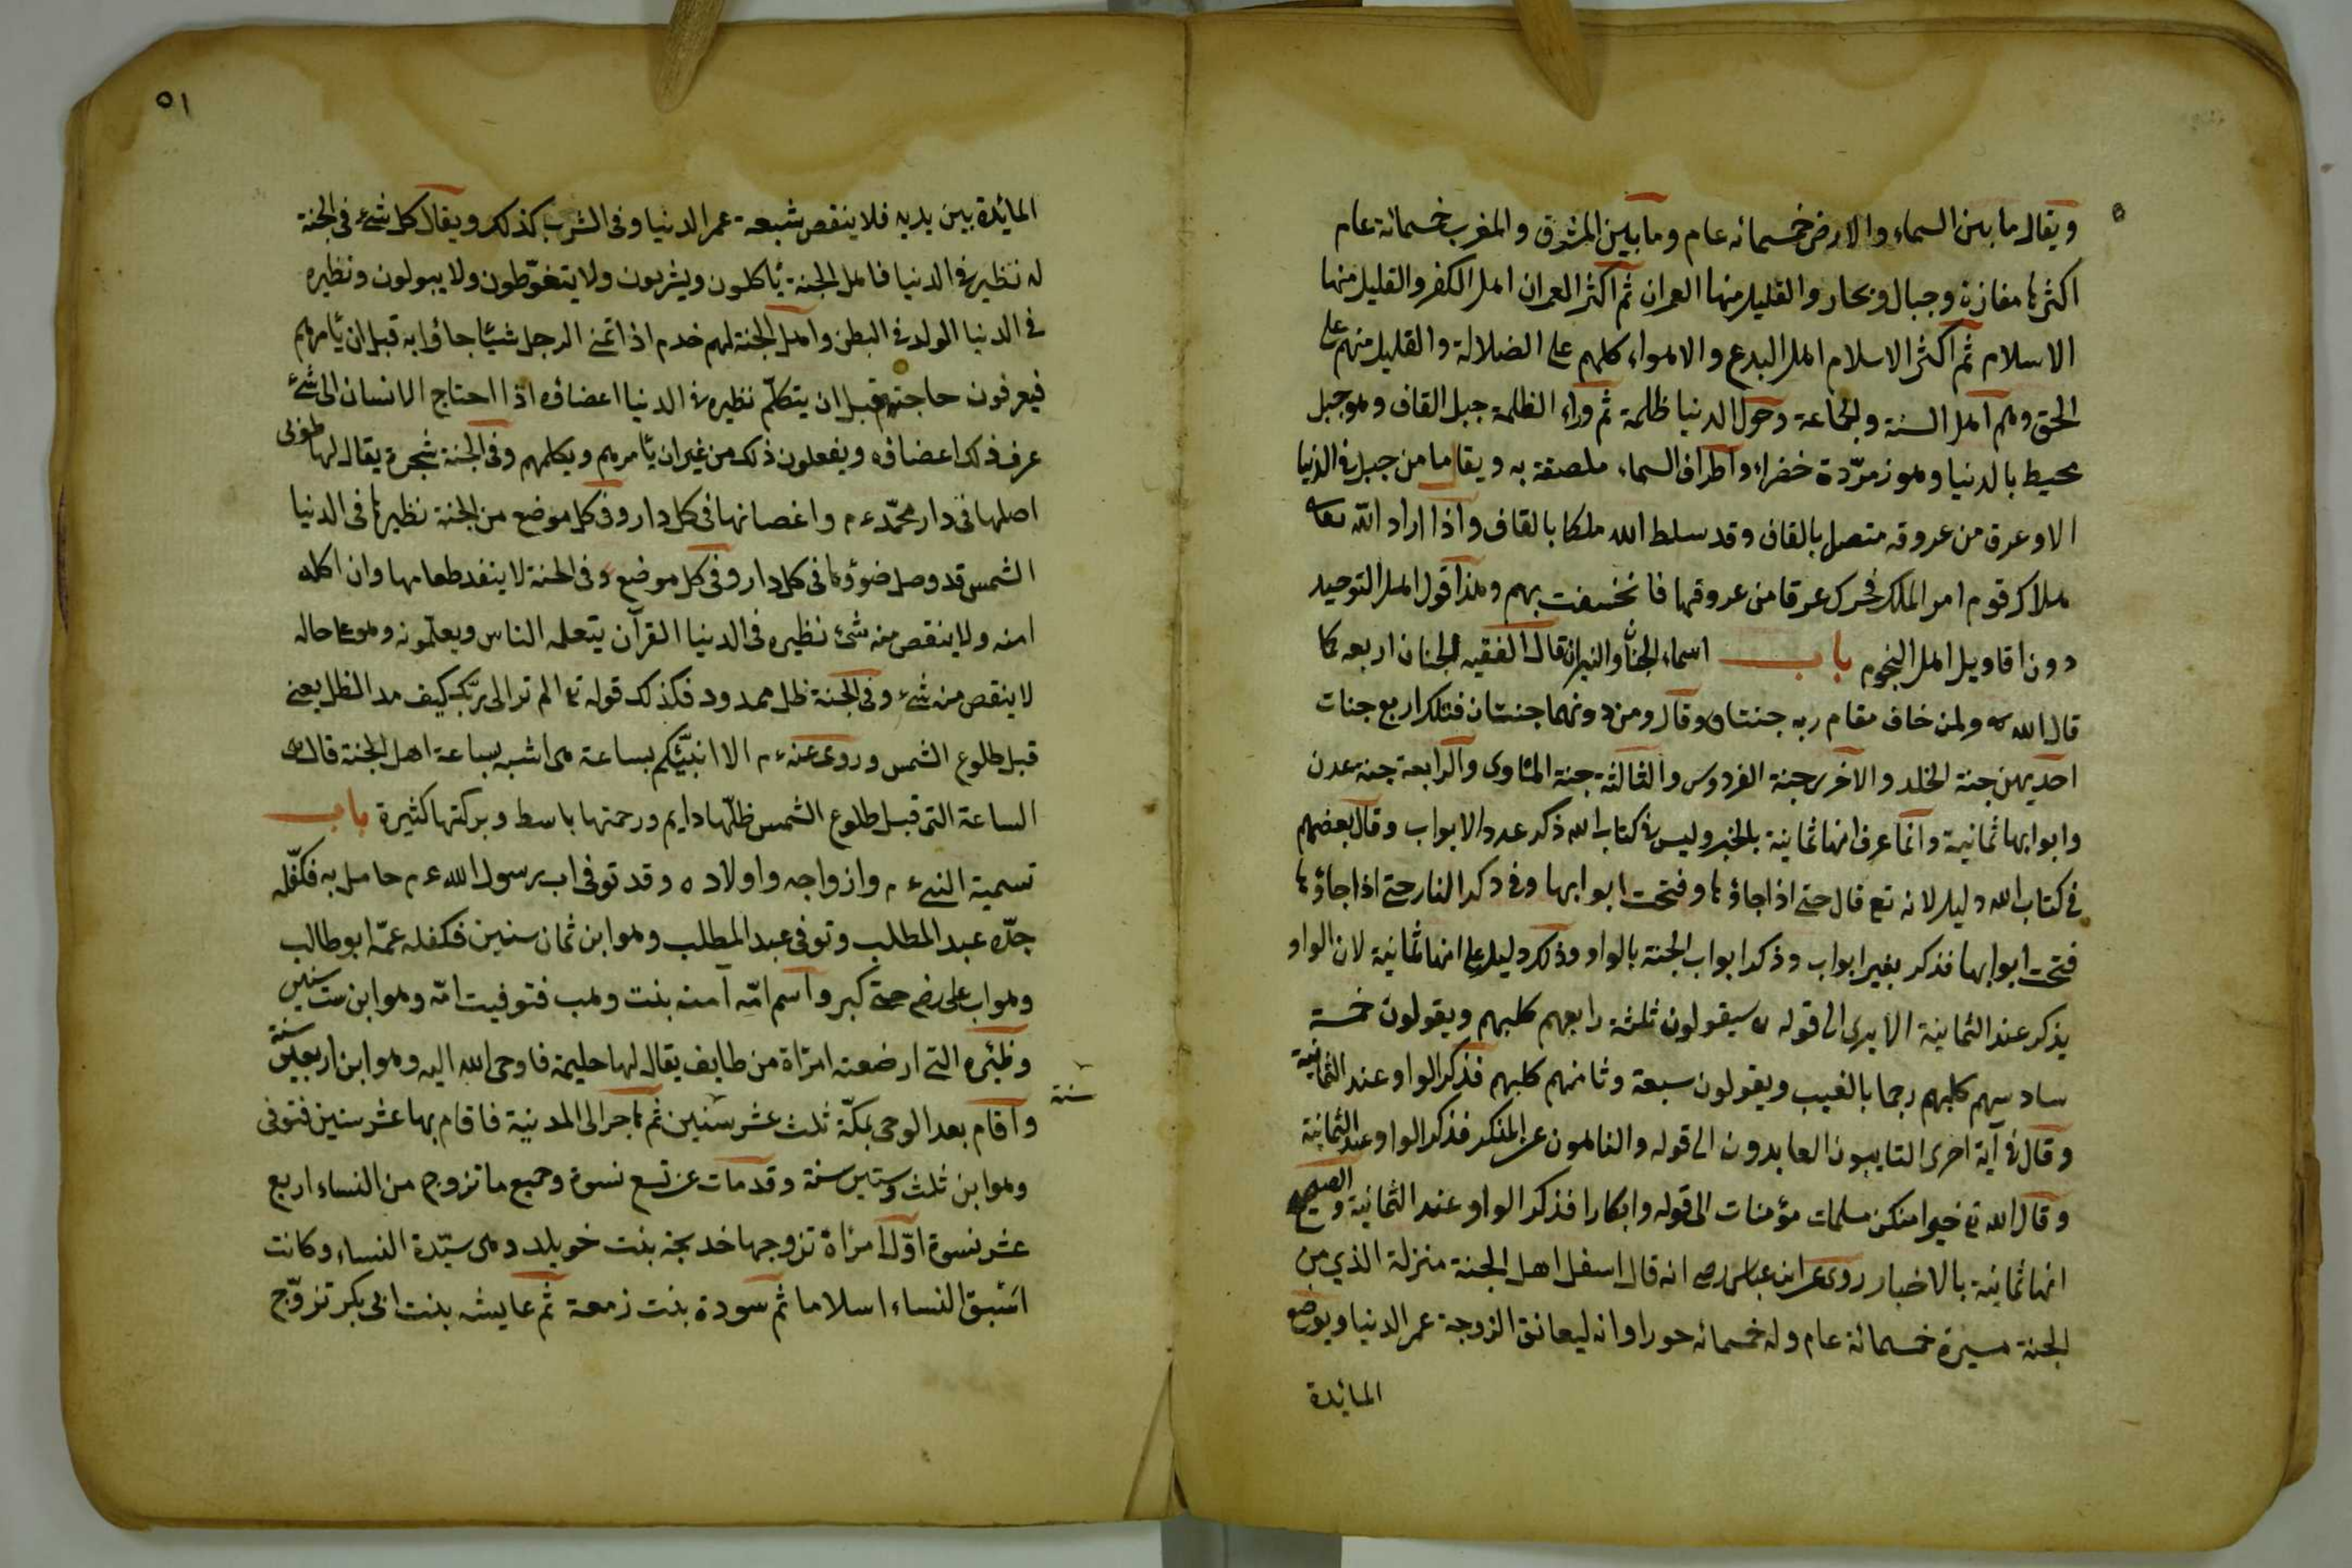 ويقال ما بين السماء والارض خمسمائه عام وما بين المشرق والمغرب خمسمائة عام
اكثرها مفازة وجبال وبحار والقليل منها العمران ثم اكثر العمران اهل الكفر والقليل منها
الاسلام ثم اكثر الاسلام اهل البدع والاهواء كلهم على الضلالة والقليل منهم على
الحق وهم اهل السنة والجماعة وحول الدنيا ظلمة ثم وراء الظلمة جبل القاف وهو جبل
محيط بالدنيا وهو زمرّدة خضراء واطراف السماء ملصقة به ويقال ما من جبل في الدنيا
الا وعرق من عروقه متصل بالقاف وقد سلط الله ملكا بالقاف واذا اراد الله تعالى
هلاك قوم امر الملك فحرك عرقا من عروقها فانخسفت بهم وهذا قول اهل التوحيد
دون اقاويل اهل النجوم باب اسماء الجنان والنيران قال الفقيه الجنان اربعه كما
قال الله تع ولمن خاف مقام ربه جنتان وقال ومن دونهما جنتان فتلك اربع جنات
احديهن جنة الخلد والاخرى جنة الفردوس والثالثة جنة المأوى والرابعة جنة عدن
وابوابها ثمانية وانما عرف انها ثمانية بالخبر وليس في كتاب الله ذكر عدد الابواب وقال بعضهم
في كتاب الله دليل لانه تع قال حتى اذا جاؤها وفتحت ابوابها وفي ذكر النار حتى اذا جاؤها
فتحت ابوابها فذكر بغير ابواب وذكر ابواب الجنة بالواو وذلك دليل على انها ثمانية لان الواو
يذكر عند الثمانية الا يرى الى قوله سيقولون ثلثة رابعهم كلبهم ويقولون خمسة
سادسهم كلبهم رجما بالغيب ويقولون سبعة وثامنهم كلبهم فذكر الواو عند الثمانية
وقال في آية اخرى التايبون العابدون الى قوله والناهون عن المنكر فذكر الواو عند الثمانية
وقال الله تع خيرا منكن مسلمات مؤمنات الى قوله وابكارا فذكر الواو عند الثمانية والصحيح
انها ثمانية بالاخبار روى عن ابن عباس رضى انه قال اسفل اهل الجنة منزلة الذي من
الجنة مسيرة خمسمائة عام وله خمسمائه حورا وانه ليعانق الزوجة عمر الدنيا ويوضع
المايدة
٥١
المائدة بين يديه فلا ينقص شبعه عمر الدنيا وفى الشرب كذلك ويقال كل شئ فى الجنة
له نظير في الدنيا فاهل الجنة يأكلون ويشربون ولا يتغوّطون ولا يبولون ونظيره
في الدنيا الولد في البطن واهل الجنة لهم خدم اذا تمنى الرجل شيئا جاؤا به قبل ان يأمرهم
فيعرفون حاجتهم قبل ان يتكلّم نظيره في الدنيا اعضاؤه اذا احتاج الانسان الى شئ
عرف ذلك اعضاؤه ويفعلون ذلك من غير ان يأمرهم ويكلمهم وفى الجنة شجرة يقال لها طوبى
اصلها فى دار محمّد ع م واغصانها فى كل دار وفى كل موضع من الجنة نظيرها فى الدنيا
الشمس قد وصل ضوؤها فى كل دار وفى كل موضع وفى الجنة لا ينفد طعامها وان اكله
امنه ولا ينقص منه شئ نظيره فى الدنيا القرآن يتعلمه الناس ويعلّمونه وهو على حاله
لا ينقص منه شئ وفى الجنة ظل ممدود فكذلك قوله تع الم تر الى ربّك كيف مد الظل يعنى
قبل طلوع الشمس وروى عنه ع م الا انبّئكم بساعة هى اشبه بساعة اهل الجنة قال هى
الساعة التى قبل طلوع الشمس ظلّها دايم ورحمتها باسط وبركتها كثيرة باب
تسمية النبي ع م وازواجه واولاده وقد توفى اب رسول الله ع م حامل به فكفّله
جدّه عبد المطلب وتوفى عبد المطلب وهو ابن ثمان سنين فكفله عمّه ابو طالب
وهو اب على رضى حتى كبر واسم امّه آمنه بنت وهب فتوفيت امّه وهو ابن ست سنين
وظئره التى ارضعته امرأة من طايف يقال لها حليمة فاوحى الله اليه وهو ابن اربعين سنة
سنة
واقام بعد الوحى بمكّة ثلث عشر سنين ثم هاجر الى المدينة فاقام بها عشر سنين فتوفى
وهو ابن ثلث وستين سنة وقد مات عن تسع نسوة وجميع ما تزوج من النساء اربع
عشر نسوة اوّل امرأة تزوجها خديجة بنت خويلد وهى سيّدة النساء وكانت
اسبق النساء اسلاما ثم سودة بنت زمعة ثم عايشه بنت ابى بكر تزوّج